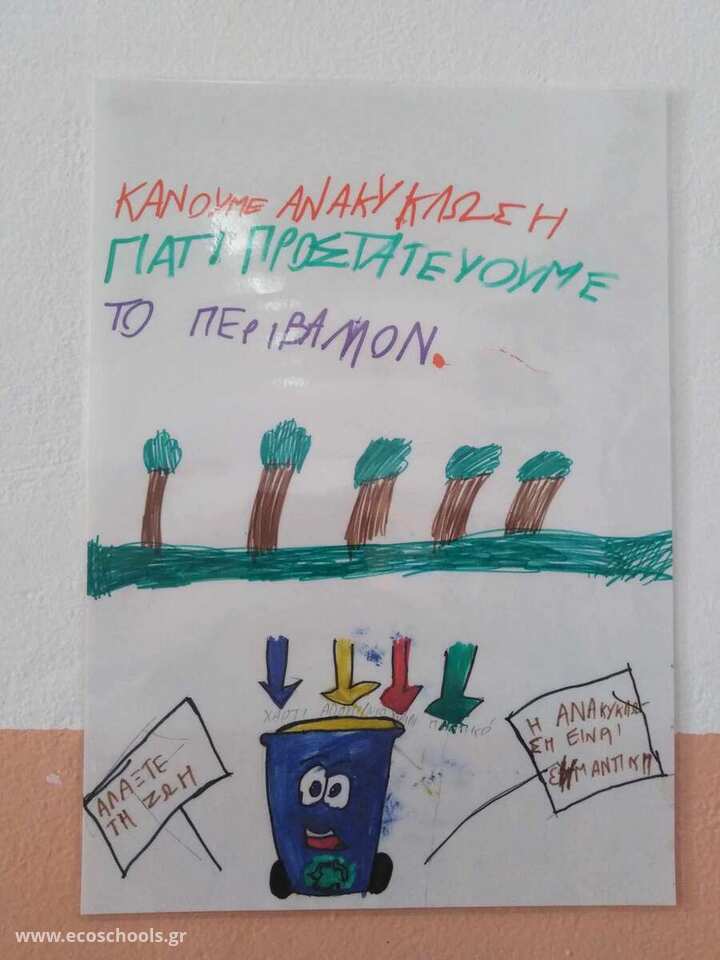 ΚΑΝΟΥΜΕ ΑΝΑΚΥΚΛΩΣΗ
ΓΙΑΤΙ ΠΡΟΣΤΑΤΕΥΟΥΜΕ
ΤΟ ΠΕΡΙΒΑΛΛΟΝ.
ΧΑΡΤΙ ΑΛΟΥΜΙΝΙΟ
ΑΛΑΞΤΕ
ΤΗ ΖΩΗ
Η ΑΝΑΚΥΚΛΩ-
ΣΗ ΕΙΝΑΙ
ΣΗΜΑΝΤΙΚΗ
www.ecoschools.gr